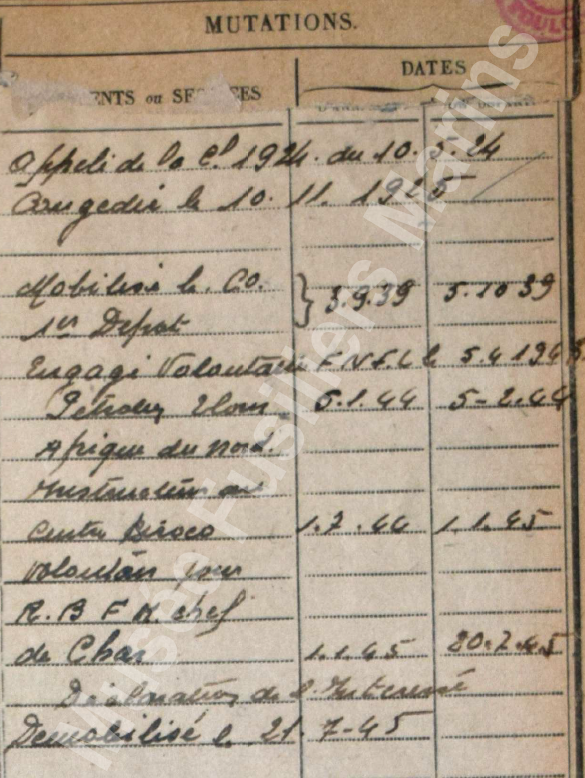 MUTATIONS.
DATES
ENTS ou SE ES
TOULO
Appelé de la Cl 1924. du 10. 5. 24
Congédié le 10. 11. 1925
Mobilisé le. CO. } 3.9.39 5.10 39
1er Depot
Engagé Volontaire F.N.F.L le 5.4 194
5.1.44 5-2.44
Afrique du nord.
Instruction au
Centre Siroco 1.7.44 1.1.45
Volontaire pour
R.B F M chef
de Char 1.1.45 20.7.45
Déclaration de l'Interessé
Demobilisé le 21. 7-45
Musée Fusiliers Marins